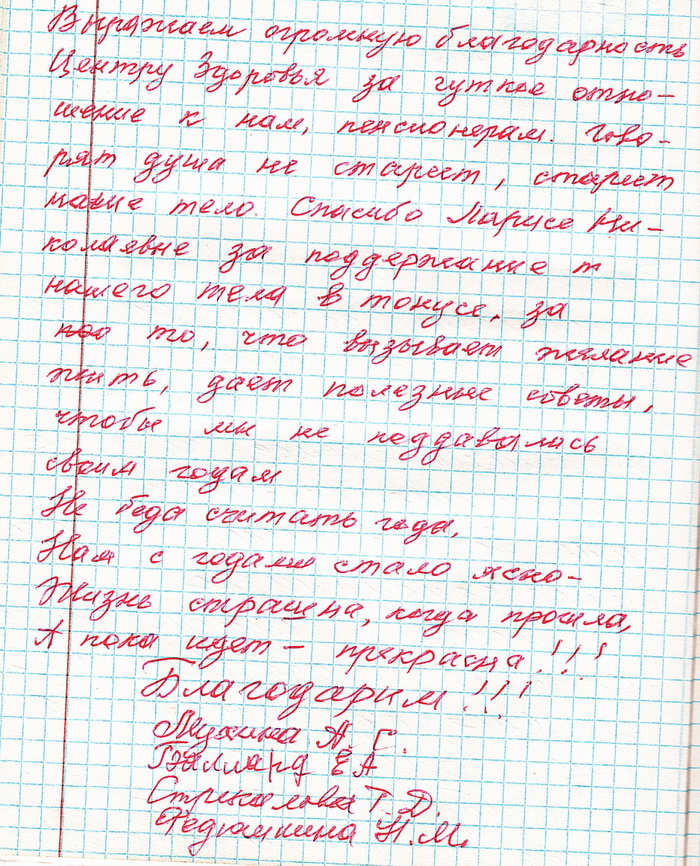 Выражаем огромную благодарность
Центру Здоровья за чуткое отно-
шение к нам, пенсионерам. Гово-
рят душа не стареет, стареет
наше тело. Спасибо Ларисе Ни-
колаевне за поддержание т
нашего тела в тонусе, за
то, что вызывает желание
жить, дает полезные советы,
чтобы мы не поддавались
своим годам
Не беда считать года,
Нам с годами стало ясно-
Жизнь страшна, когда прошла,
А пока идет - прекрасна!!!
Благодарим!!!
Мухина А. С.
Баллард Е А
Стрикалова Т. Д.
Федюшкина Н. М.